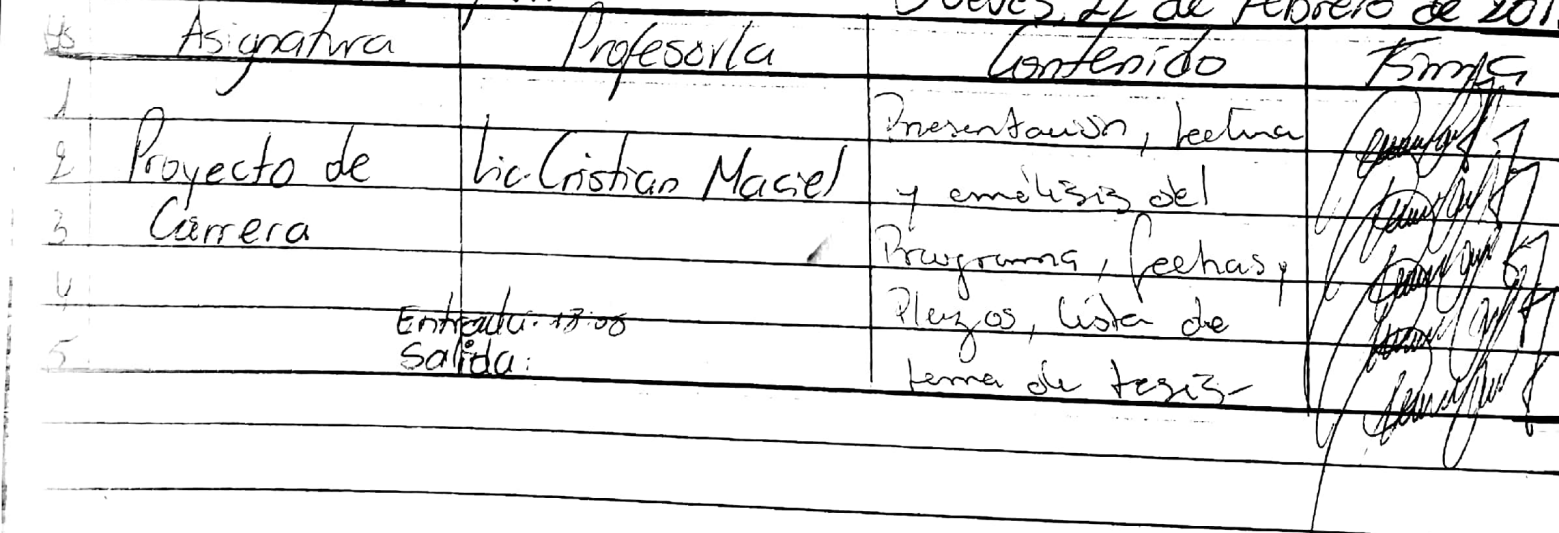 Jueves, 22 de Febrero de 201
Hs Asignatura Profesor/a Contenido Firma
1 Presentación, lectura
2 Proyecto de Lic. Cristian Maciel y análisis del
3 Carrera Programa, fechas,
4 Plazos, lista de
Entrada: 18:00
5 Salida: tema de tesis-